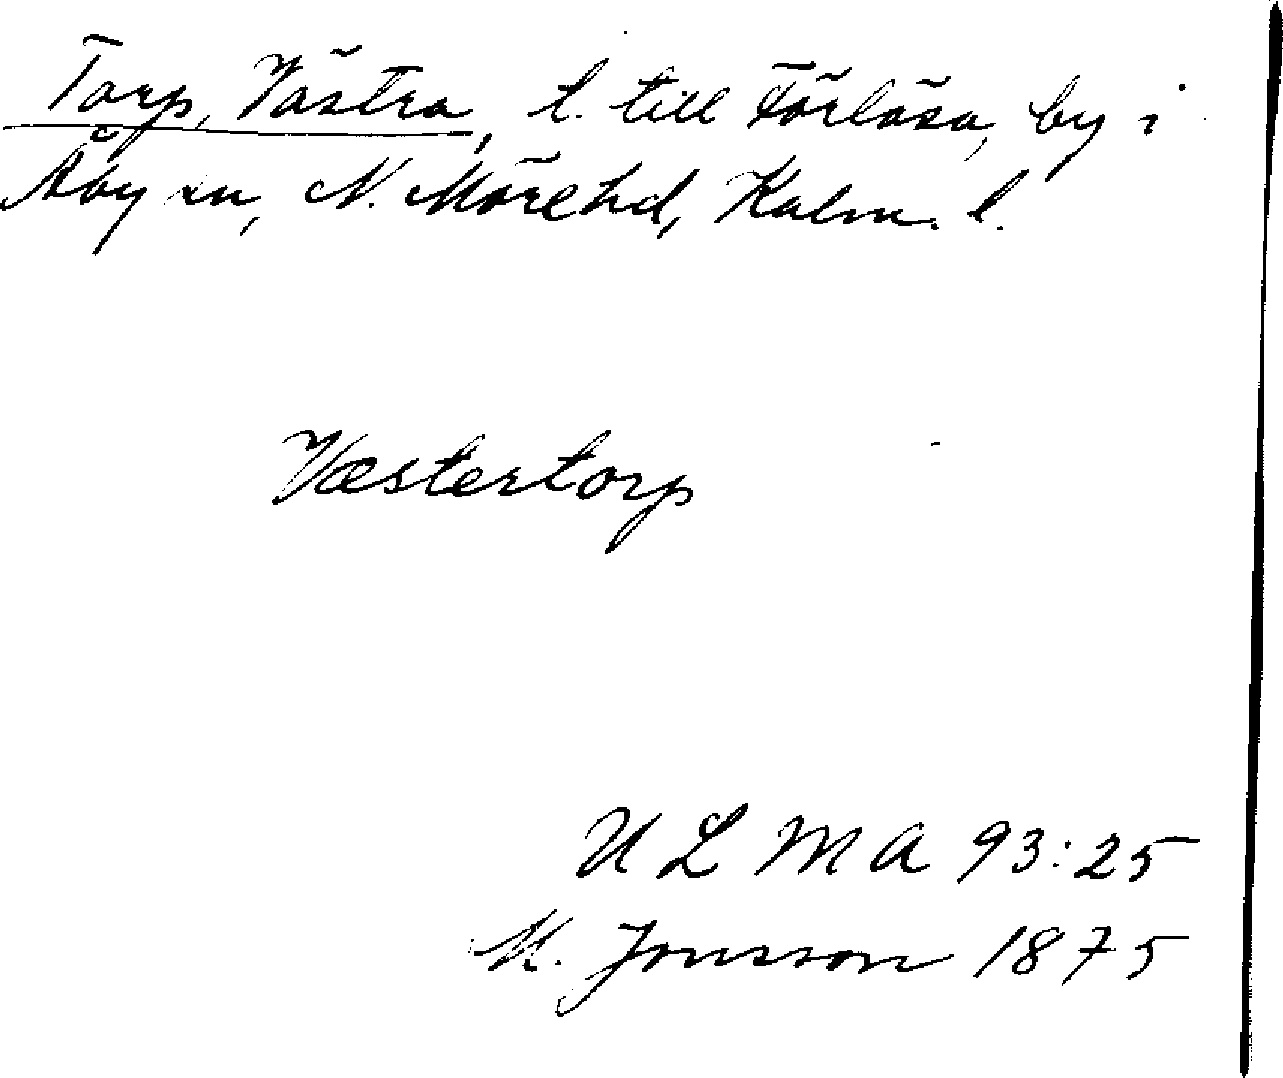 Torp, Västra, l. till Förlösa, by i
Åby sn, N. Möre hd, Kalm. l.
Væstertorp
ULMA 93:25
M. Jonsson 1875